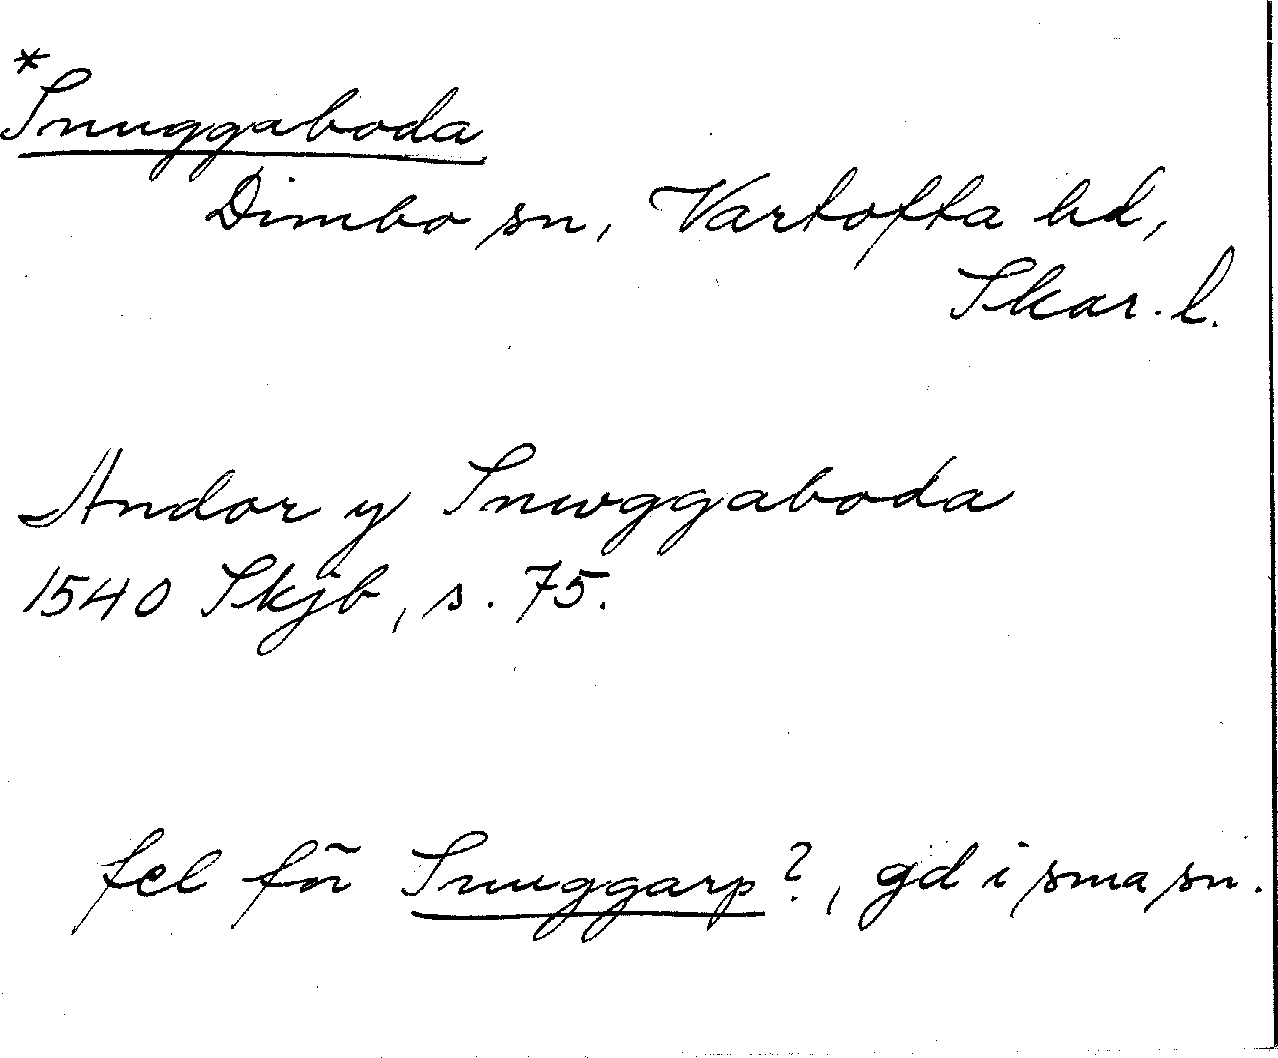 *
Snuggaboda
Dimbo sn, Vartofta hd,
Skar. l.
Andor y Snwggaboda
1540 Skjb, s. 75.
fel för Snuggarp?, gd i sma sn.